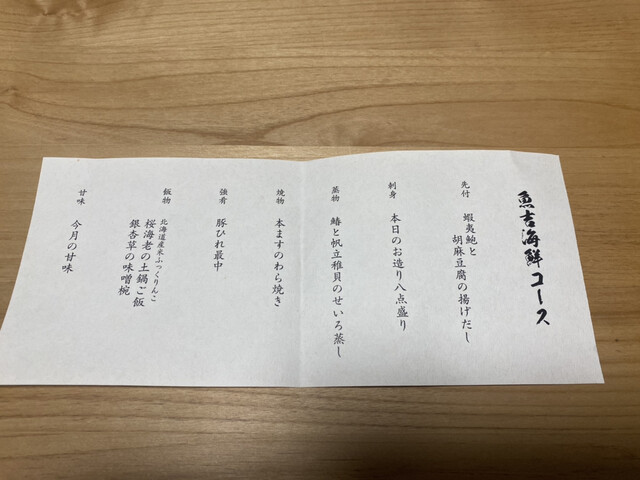 魚吉海鮮コース
先付
蝦夷鮑と
胡麻豆腐の揚げだし
刺身
本日のお造り八点盛り
蒸物
鰆と帆立稚貝のせいろ蒸し
焼物
本ますのわら焼き
強肴
豚ひれ最中
飯物
北海道産米ふっくりんこ
桜海老の土鍋ご飯
銀杏草の味噌椀
甘味
今月の甘味